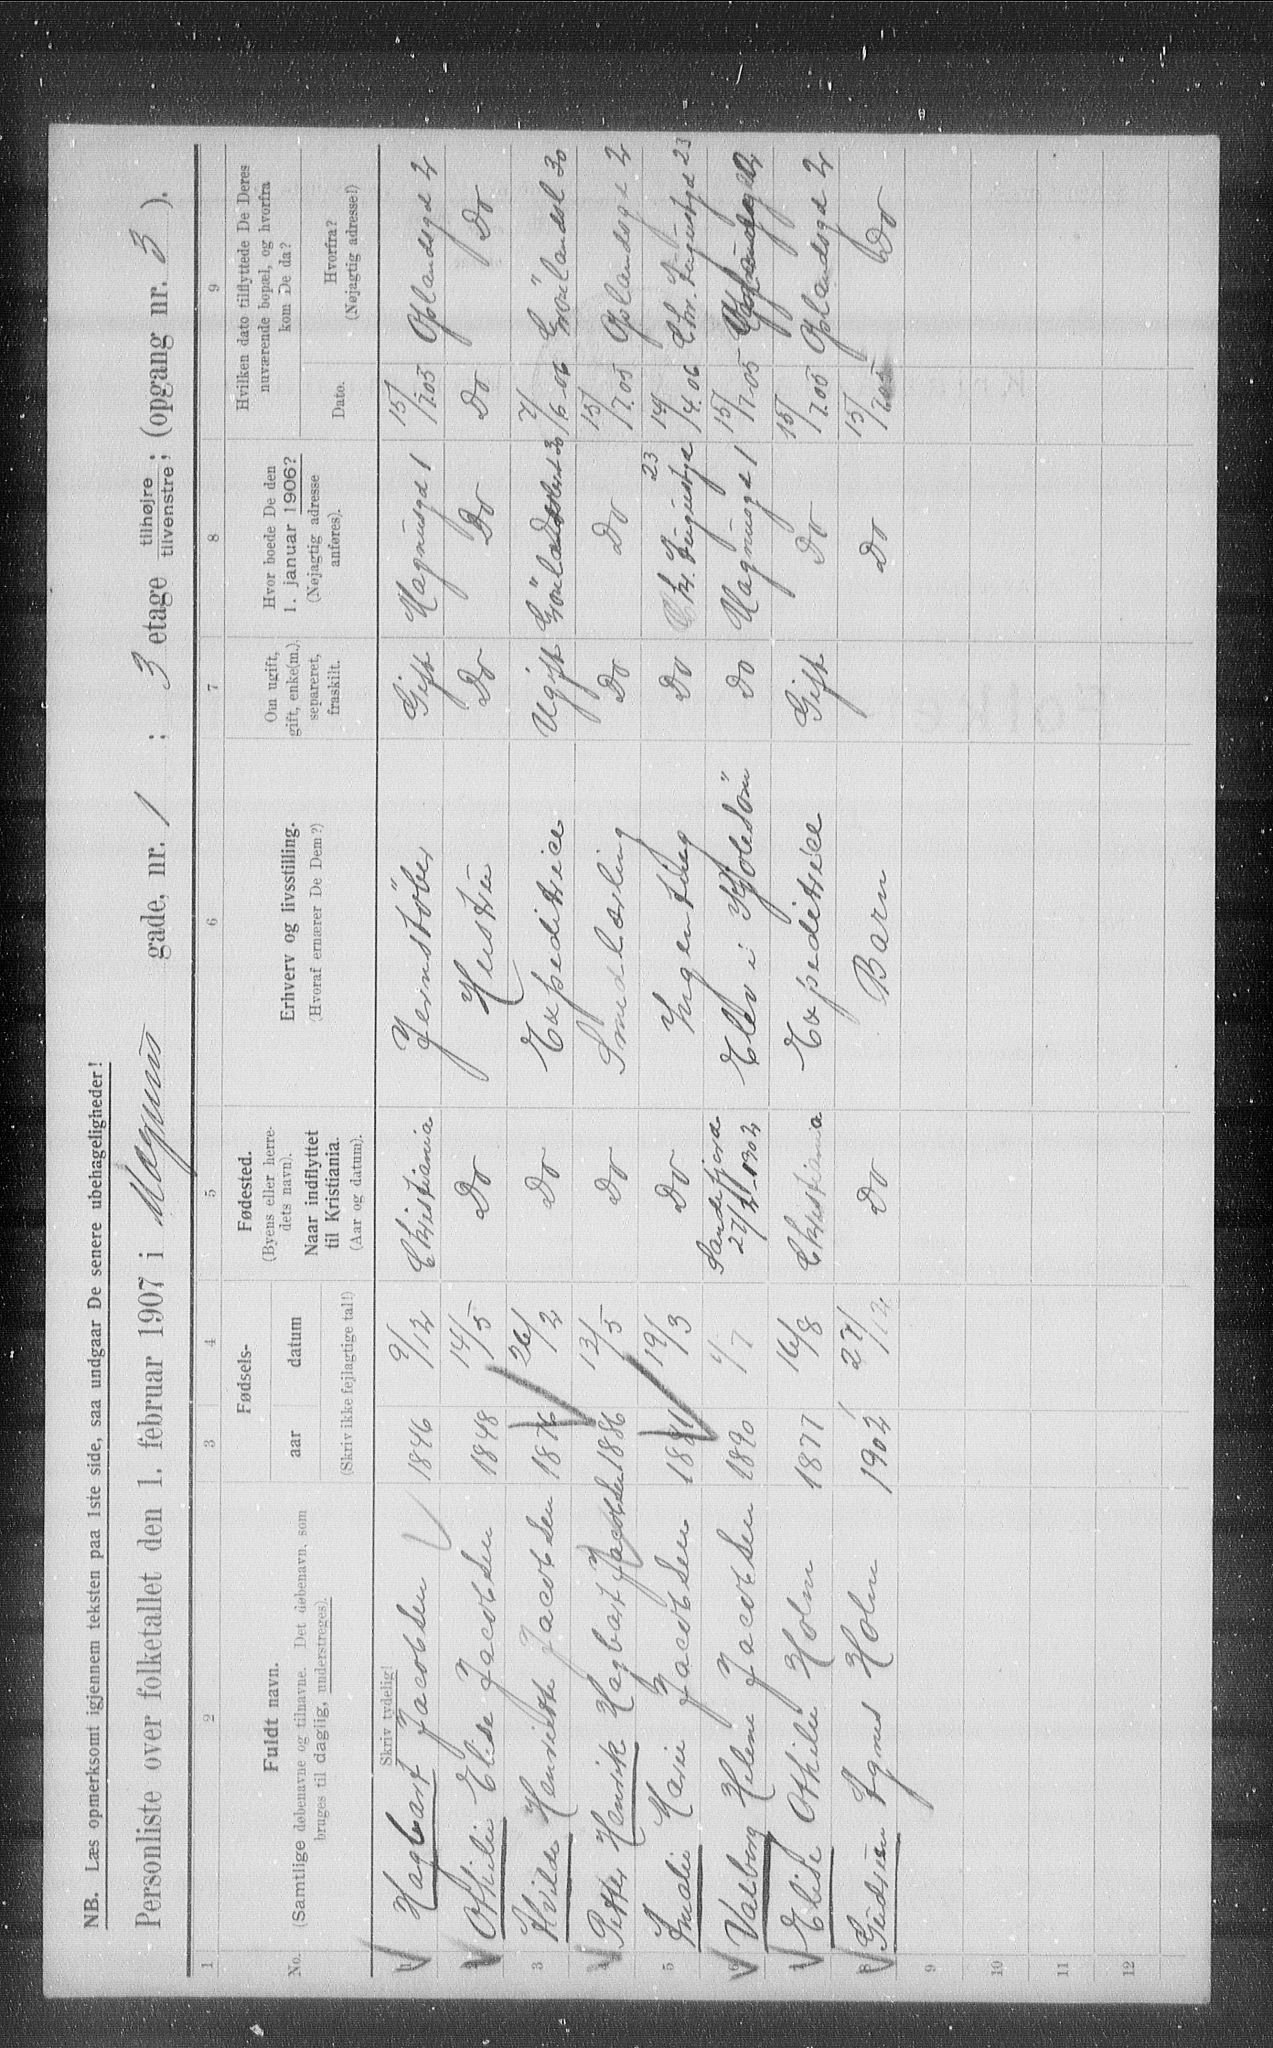 NB. Læs opmerksomt igjennem teksten paa 1ste side, saa undgaar De senere ubehageligheder!
Personliste over folketallet den 1. februar 1907 i Magnus gade, nr. 1 ; 3 etage tilhøjre tilvenstre; (opgang nr. 3 ).
1 2 3 4 5 6 7 8 9
No.
Fuldt navn.
(Samtlige døbenavne og tilnavne. Det døbenavn, som
bruges til daglig, understreges).
Fødsels-
aar datum
(Skriv ikke fejlagtige tal!)
Fødested.
(Byens eller herre-
dets navn).
Naar indflyttet
til Kristiania.
(Aar og datum).
Erhverv og livsstilling.
(Hvoraf ernærer De Dem?)
Om ugift,
gift, enke(m.),
separeret,
fraskilt.
Hvor boede De den
1. januar 1906?
(Nøjagtig adresse
anføres).
Hvilken dato tilflyttede De Deres
nuværende bopæl, og hvorfra
kom De da?
Dato.
Hvorfra?
(Nøjagtig adresse!)
Skriv tydelig!
1 Hagbart Jacobsen 1846 9/12 Christiania Jernstöber Gift Magnusgd 1 15/7.05 Oplandsgd 2
2 Othilie Elise Jacobsen 1848 14/5 Do Hustru Do Do Do Do
3 Hvilda Henriette Jacobsen 1876 26/2 Do Expeditrice Ugift Grönlandsl 30 7/6.06 Grönlandsl 30
4 Petter Henrik Hagbart Jacobsen 1886 12/5 Do Smedlærling Do Do 15/7.05 Oplandsgd 2
5 Amalie Marie Jacobsen 1881 19/3 Do Ingenting Do Chr. Augustgd 23 14/4.06 Chr. Augustgd 23
6 Valborg Helene Jacobsen 1890 4/7 Sandefjord 1902 Elev i Do Magnusgd 1 15/7.05
7 Elise Othilie Holm 1877 16/8 Christiania Expeditrice Gift Do 15/7.05 Oplandsgd 2
8 Gudrun Agnes Holm 1902 27/12 Do Barn Do 15/7.05 Do
9
10
11
12